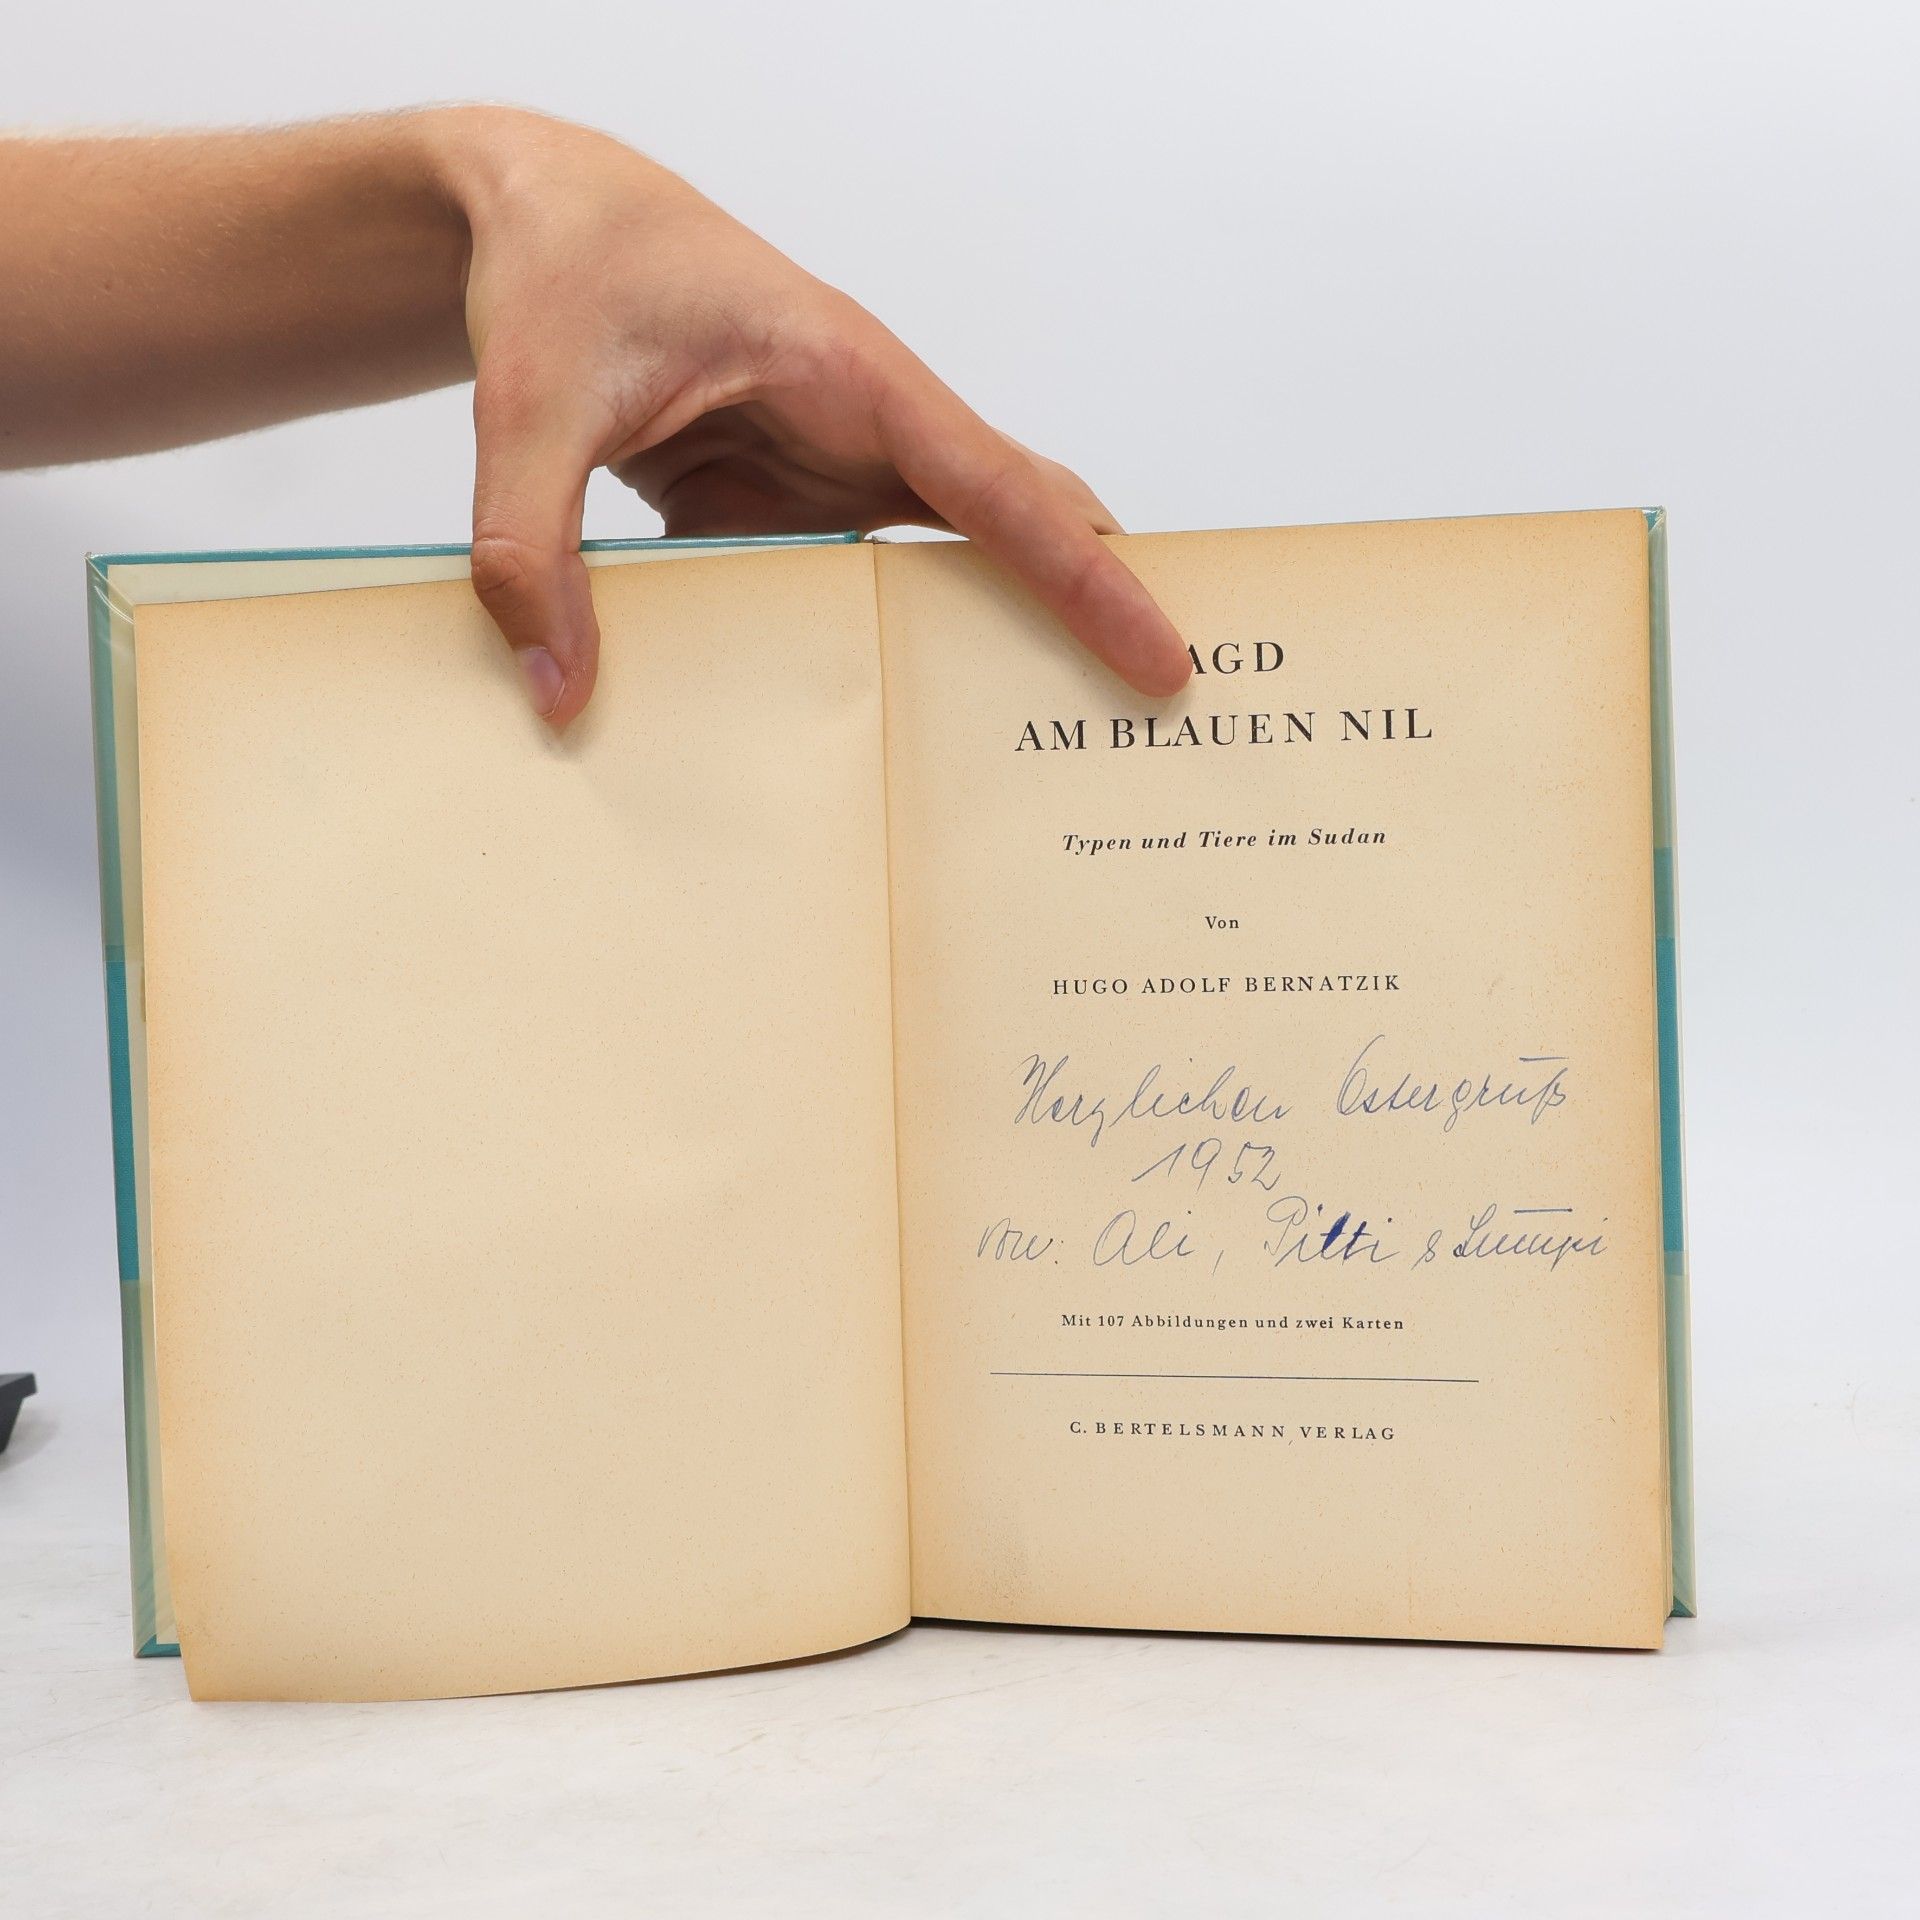 AGD
AM BLAUEN NIL
Typen und Tiere im Sudan
Von
HUGO ADOLF BERNATZIK
Herzlichen Ostergruß
1952
von: Ali, Pitti &
Mit 107 Abbildungen und zwei Karten
C. BERTELSMANN VERLAG